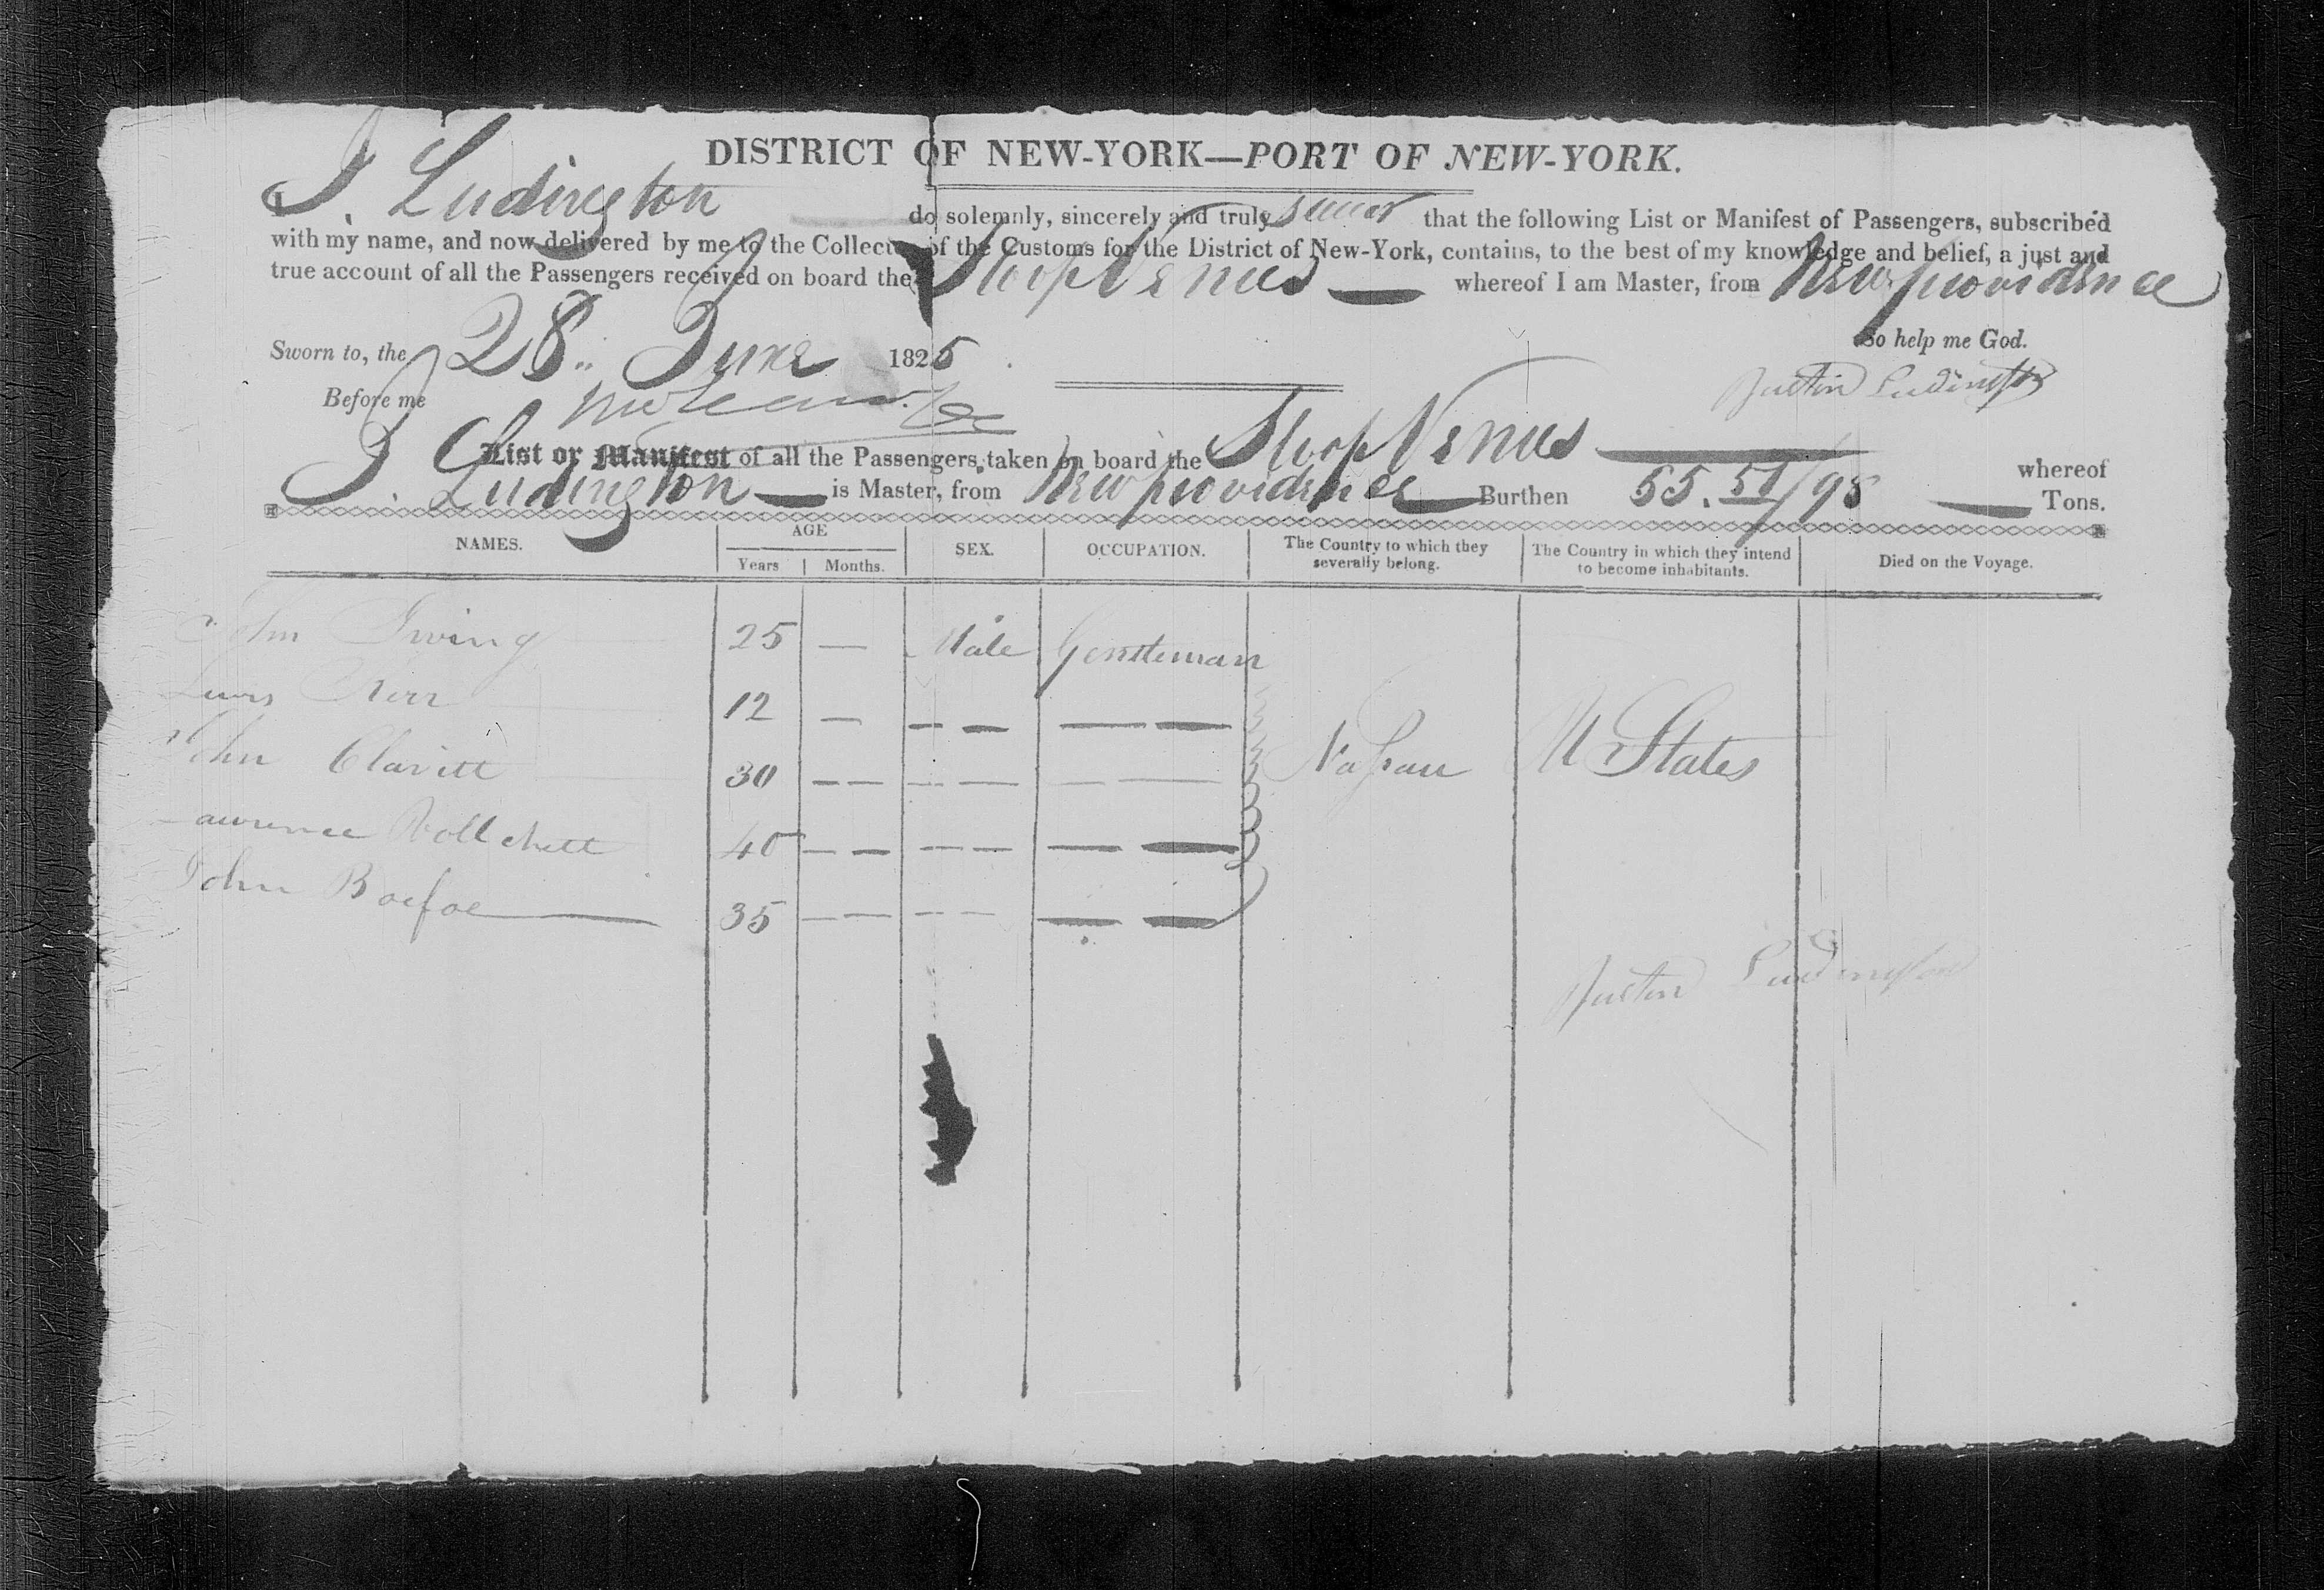 DISTRICT OF NEW-YORK—PORT OF NEW-YORK.
I, J. Ludington do solemnly, sincerely and truly swear that the following List or Manifest of Passengers, subscribed
with my name, and now delivered by me to the Collector of the Customs for the District of New-York, contains, to the best of my knowledge and belief, a just and
true account of all the Passengers received on board the Sloop Venus — whereof I am Master, from New providence
So help me God.
Sworn to, the 28 June 1825
Justin Ludington
Before me
List or Manifest of all the Passengers taken on board the Sloop Venus — whereof
J. Ludington — is Master, from New providence — Burthen 55. 51/95 — Tons.
NAMES. AGE Years Months. SEX. OCCUPATION. The Country to which they severally belong. The Country in which they intend to become inhabitants. Died on the Voyage.
John 25 — Male Gentleman
Lewis Kerr 12 — — — — —
John 30 — — — — — — Nassau U States
Lawrence 40 — — — — — —
John 35 — — — — — —
Justin Ludington